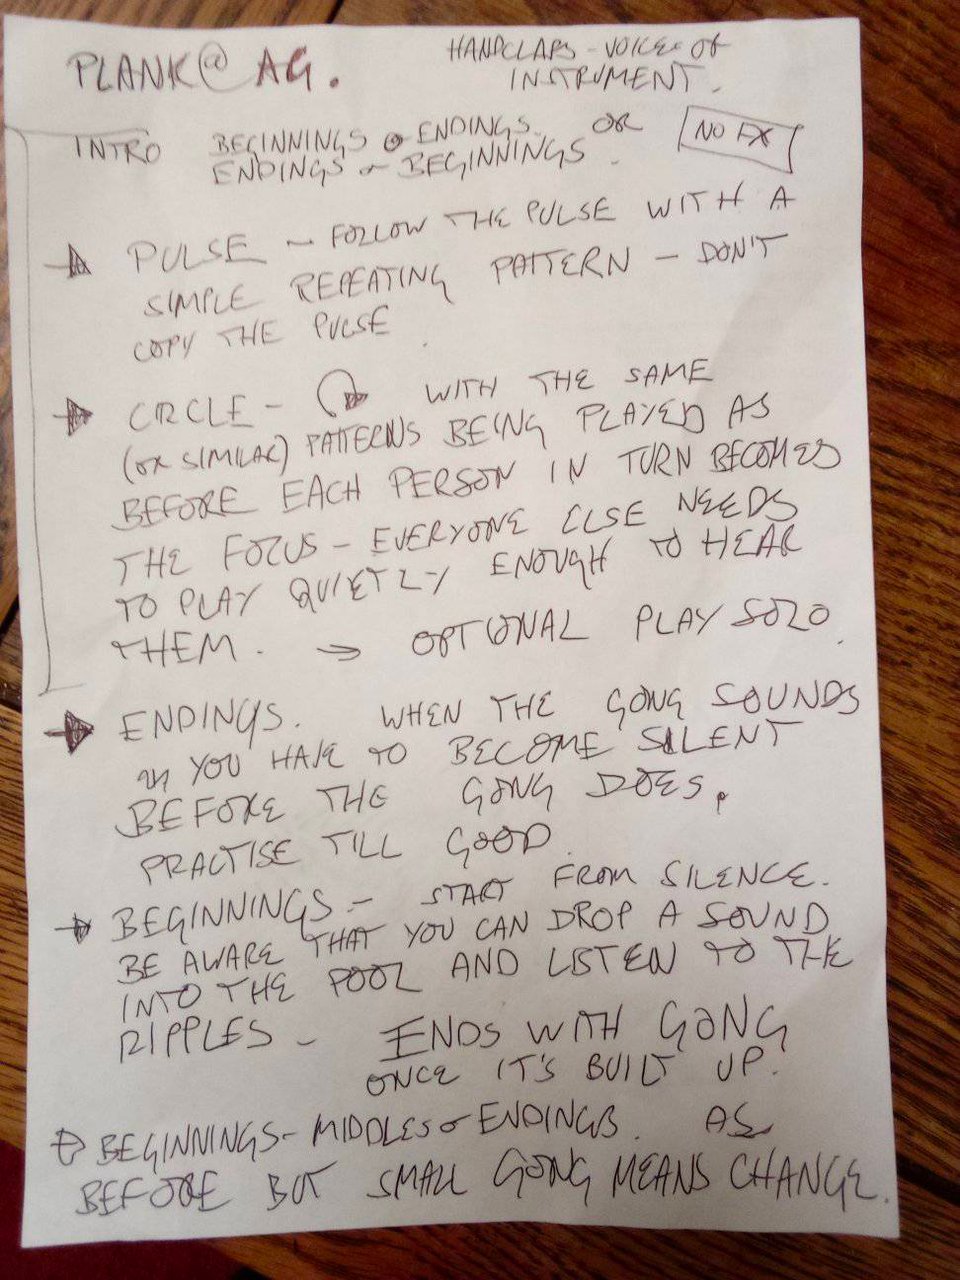 PLANK @ AG.
HANDCLAPS - VOICE or
INSTRUMENT.
INTRO BEGINNINGS & ENDINGS. OR
ENDINGS & BEGINNINGS.
NO FX
PULSE - FOLLOW THE PULSE WITH A
SIMPLE REPEATING PATTERN - DON'T
COPY THE PULSE
CIRCLE - WITH THE SAME
(OR SIMILAR) PATTERNS BEING PLAYED AS
BEFORE EACH PERSON IN TURN BECOMES
THE FOCUS - EVERYONE ELSE NEEDS
TO PLAY QUIETLY ENOUGH TO HEAR
THEM. → OPTIONAL PLAY SOLO.
ENDINGS. WHEN THE GONG SOUNDS
YOU HAVE TO BECOME SILENT
BEFORE THE GONG DOES.
PRACTISE TILL GOOD.
BEGINNINGS - START FROM SILENCE.
BE AWARE THAT YOU CAN DROP A SOUND
INTO THE POOL AND LISTEN TO THE
RIPPLES - ENDS WITH GONG
ONCE IT'S BUILT UP.
BEGINNINGS - MIDDLES & ENDINGS. AS
BEFORE BUT SMALL GONG MEANS CHANGE.